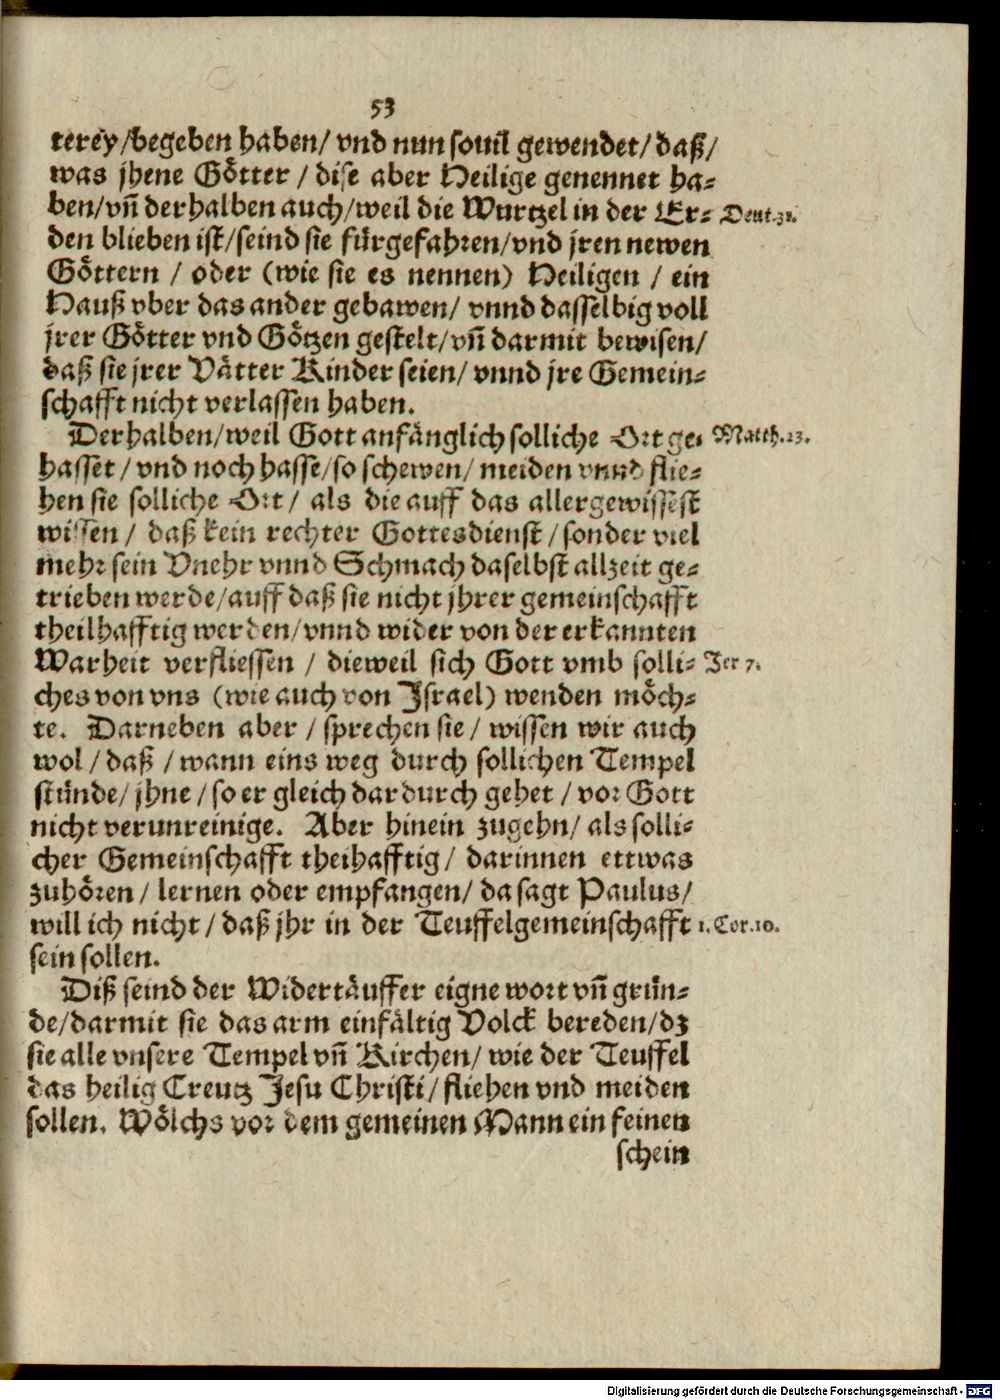 53
terey/begeben haben/ vnd nun souil gewendet/ daß/
was jhene Götter / dise aber Heilige genennet ha-
ben/vñ derhalben auch/weil die Wurtzel in der Er- Deut.32.
den blieben ist/seind sie fürgefahren/vnd jren newen
Göttern / oder (wie sie es nennen) Heiligen / ein
Hauß vber das ander gebawen/ vnnd dasselbig voll
jrer Götter vnd Götzen gestelt/vñ darmit bewisen/
daß sie jrer Vätter Kinder seien/ vnnd jre Gemein-
schafft nicht verlassen haben.
Derhalben/weil Gott anfänglich solliche Ort ge- Matth.23.
hasset/ vnd noch hasse/so schewen/ meiden vnnd flie-
hen sie solliche Ort/ als die auff das allergewissest
wissen/ daß kein rechter Gottesdienst/sonder viel
mehr sein Vnehr vnnd Schmach daselbst allzeit ge-
trieben werde/auff daß sie nicht jhrer gemeinschafft
theilhafftig werden/vnnd wider von der erkannten
Warheit verfliessen / dieweil sich Gott vmb solli- Jer 7.
ches von vns (wie auch von Israel) wenden möch-
te. Darneben aber / sprechen sie/ wissen wir auch
wol/ daß / wann eins weg durch sollichen Tempel
stünde/ jhne/so er gleich dardurch gehet / vor Gott
nicht verunreinige. Aber hinein zugehn/ als solli-
cher Gemeinschafft theihafftig/ darinnen ettwas
zuhören/ lernen oder empfangen/ da sagt Paulus/
will ich nicht/ daß jhr in der Teuffelgemeinschafft 1. Cor.10.
sein sollen.
Diß seind der Widertäuffer eigne wort vñ grün-
de/darmit sie das arm einfältig Volck bereden/dz
sie alle vnsere Tempel vñ Kirchen/ wie der Teuffel
das heilig Creutz Jesu Christi/ fliehen vnd meiden
sollen. Wölchs vor dem gemeinen Mann ein feinen
schein
Digitalisierung gefördert durch die Deutsche Forschungsgemeinschaft - DFG